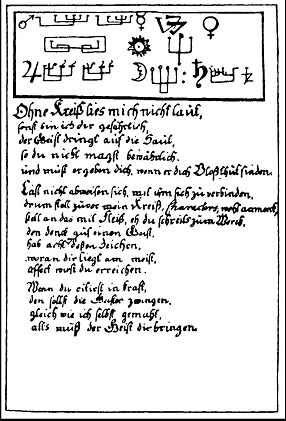 Ohne Kreiß lies mich nicht laut,
sonst bin ich dir gefährlich,
der Geist dringt auf die Haut,
so du nicht magst bewährlich.
und muß er geben dich, wenn er dich Bloß
Laß nicht abweisen sich, mit ihm sich zu verbinden,
drum stell zuvor mein Kreiß, Characters, wohl
stell an das mit Fleiß, eh du schreibst zum Werck,
den denck auf einen Geist,
hab acht deßen Zeichen,
woran dir liegt am meist,
wirst du erreichen.
Wann du citirst in Krafft,
den sollst die Geister zwingen,
gleich wie ich selbst gemacht,
alls muß der Geist dir bringen.